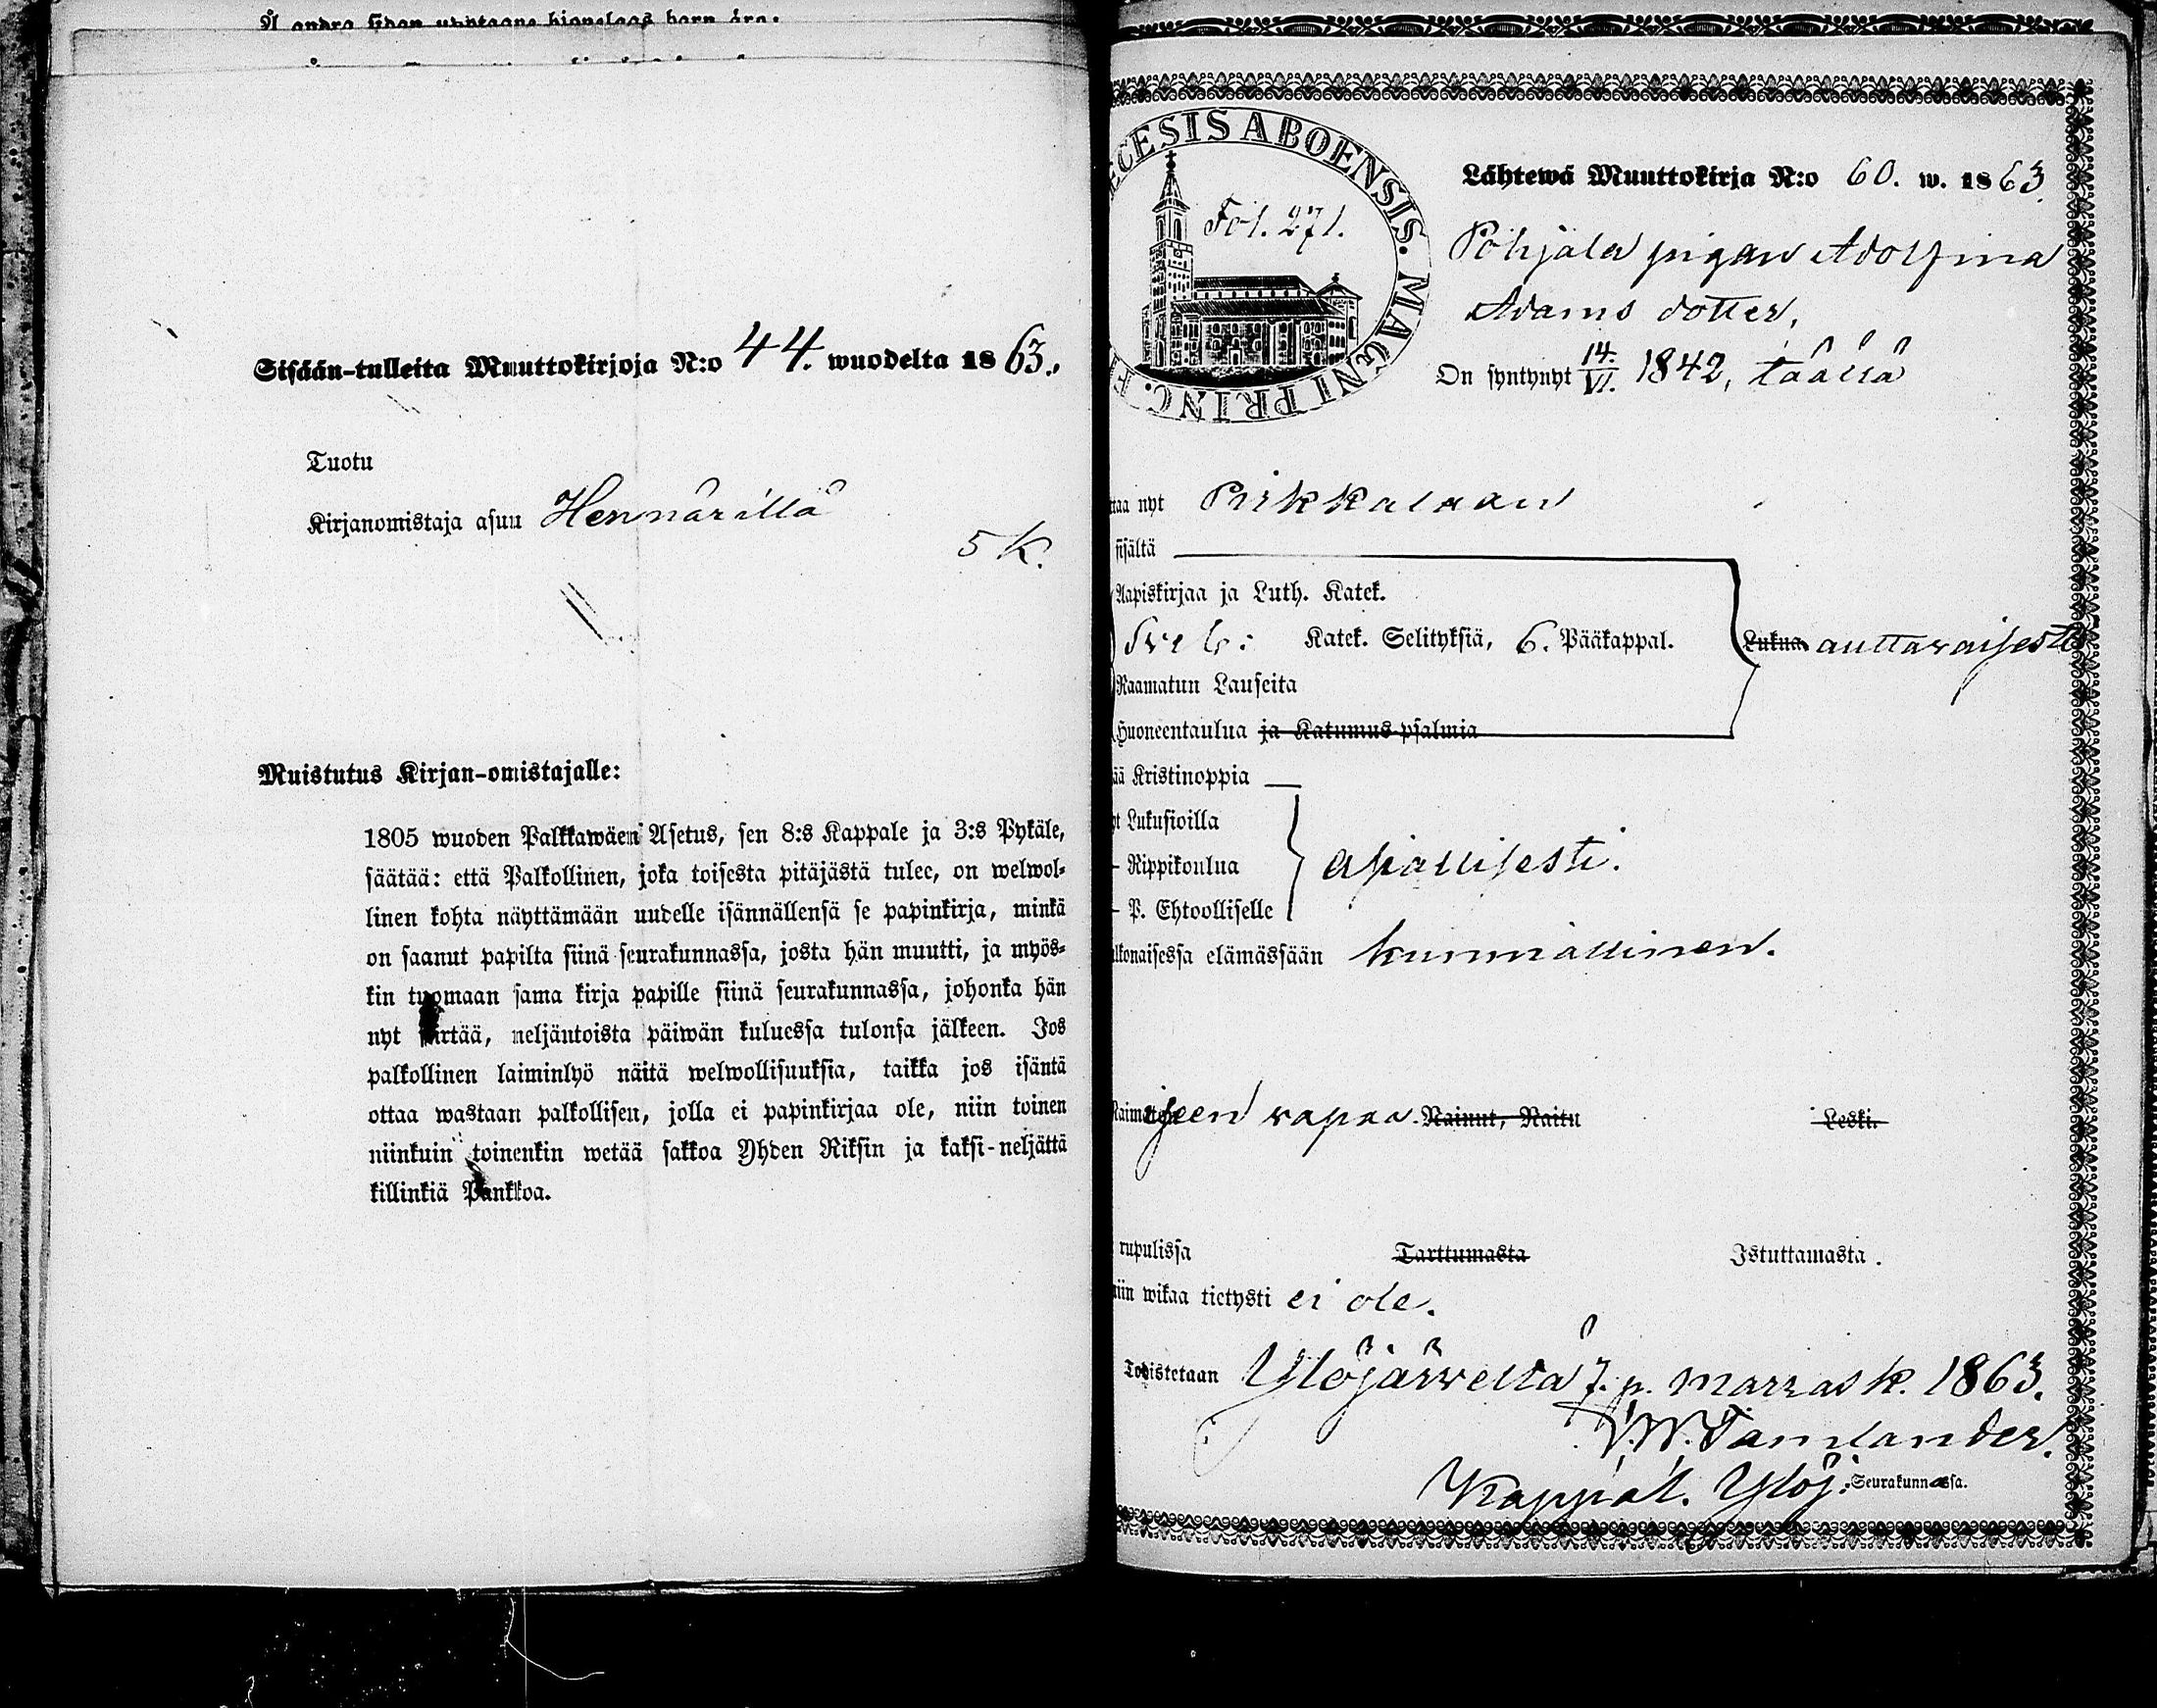 Å andra sidan upptagne hjonelags barn äro:
Sisään-tulleita Muuttokirjoja N:o 44. wuodelta 1863.
Tuotu
Kirjanomistaja asuu Hennärillä
5 K.
Muistutus Kirjan-omistajalle:
1805 wuoden Palkkawäen Asetus, sen 8:s Kappale ja 3:s Pykäle,
säätää: että Palkollinen, joka toisesta pitäjästä tulee, on welwol-
linen kohta näyttämään uudelle isännällensä se papinkirja, minkä
on saanut papilta siinä seurakunnassa, josta hän muutti, ja myös-
kin tuomaan sama kirja papille siinä seurakunnassa, johonka hän
nyt siirtää, neljäntoista päiwän kuluessa tulonsa jälkeen. Jos
palkollinen laiminlyö näitä welwollisuuksia, taikka jos isäntä
ottaa wastaan palkollisen, jolla ei papinkirjaa ole, niin toinen
niinkuin toinenkin wetää sakkoa Yhden Riksin ja kaksi-neljättä
killinkiä Pankkoa.
ECESIS ABOENSIS. MAGNI PRINC. F
Fol. 271.
Lähtewä Muuttokirja N:o 60. w. 1863.
Pohjala pigan Adolfina
Adams dotter,
On syntynyt 14./VI. 1842, täällä
taa nyt Pirkkalaan
sisältä
Aapiskirjaa ja Luth. Katek.
Sveb: Katek. Selityksiä, 6. Pääkappal. Lukua auttavaisesti
Raamatun Lauseita
Huoneentaulua ja Katumus-psalmia
ää Kristinoppia —
yt Lukusioilla
- Rippikoulua ahkerasti.
- P. Ehtoolliselle
lkonaisessa elämässään kunniallinen.
Naimiseen vapaa. Nainut, Naitu Leski.
rupulissa Tarttumasta Istuttamasta.
iin wikaa tietysti ei ole.
Todistetaan Ylöjärveltä 7. p. marrask. 1863.
Kappal. Ylöj. Seurakunnassa.